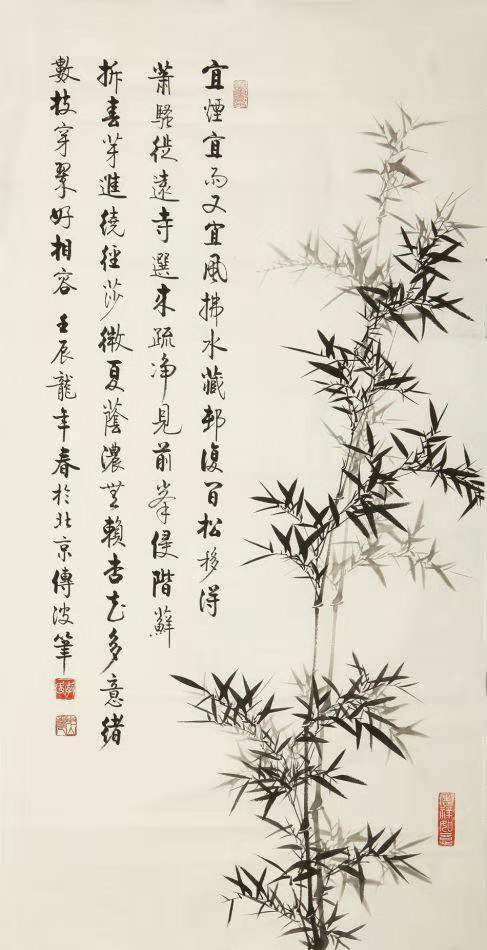 宜煙宜雨又宜風拂水藏邨復間松移得
蕭騷從遠寺選來疏淨見前峯侵階蘚
拆春芽進繞徑莎微夏蔭濃無賴杏花多意緒
數枝穿翠好相容 壬辰龍年春於北京傳波筆
吉祥如意